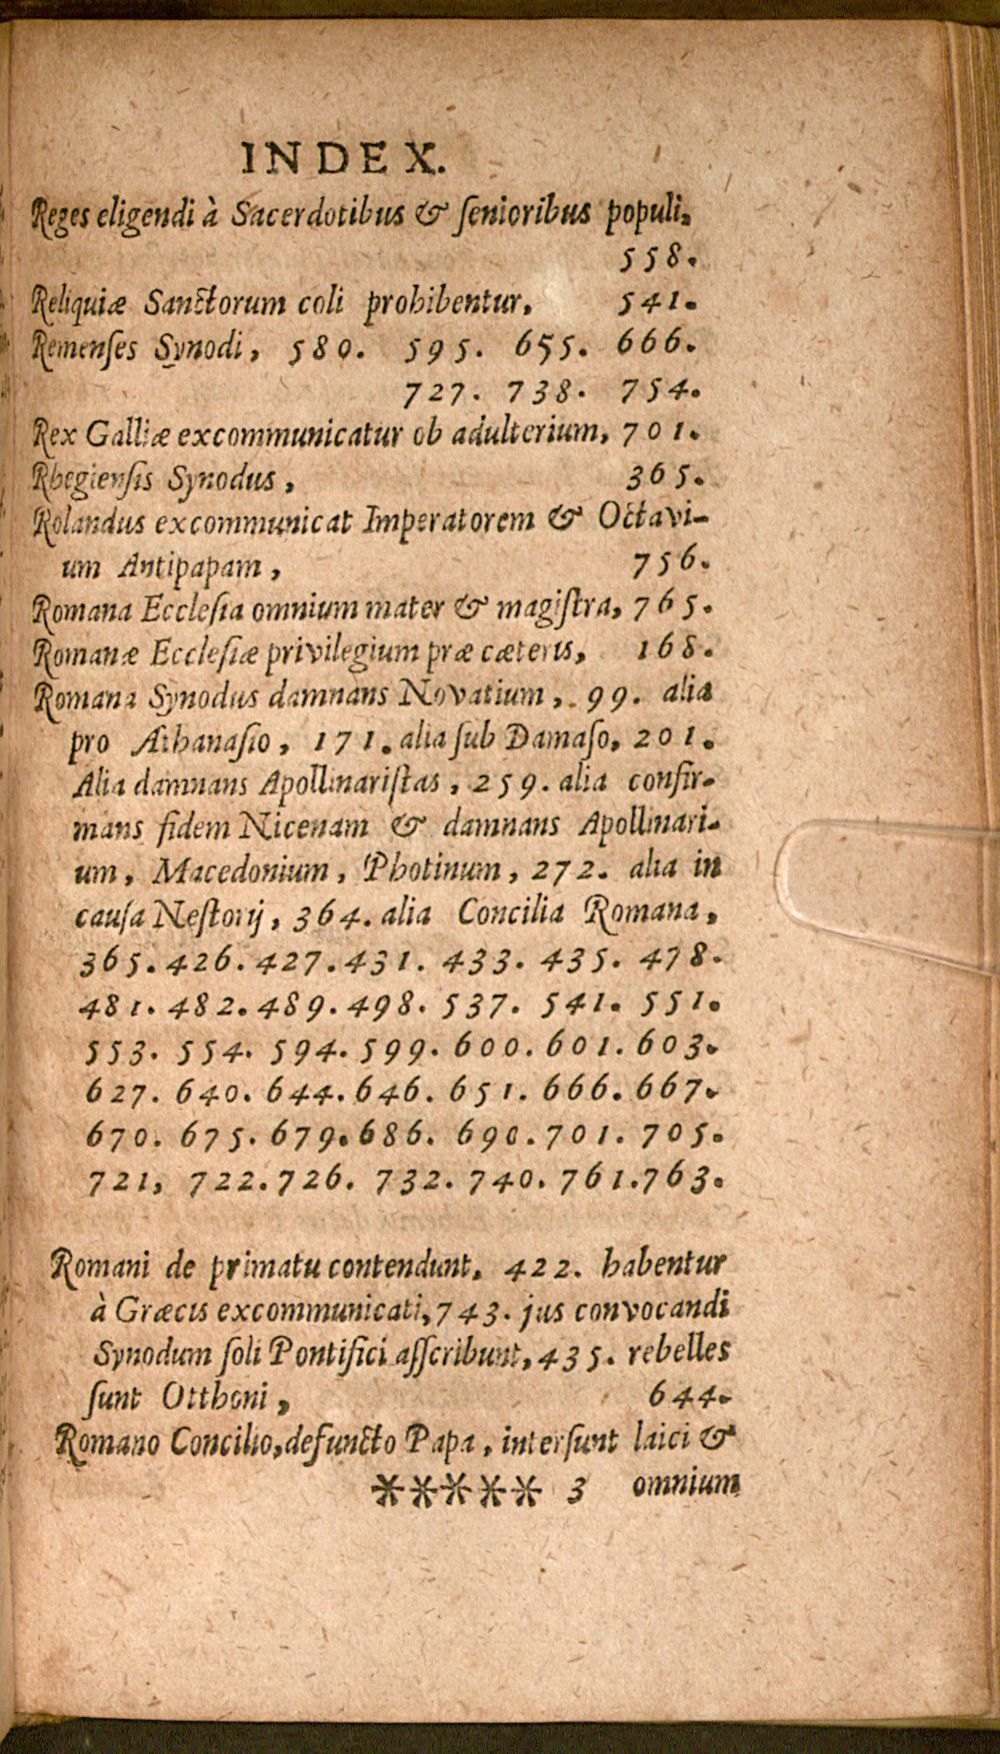 INDEX.
Reges eligendi à Sacerdotibus & ſenioribus populi,
558.
Reliquiæ Sanctorum coli prohibentur, 541.
Remenſes Synodi, 580. 595. 655. 666.
727. 738. 754.
Rex Galliæ excommunicatur ob adulterium, 701.
Rhegienſis Synodus, 365.
Rolandus excommunicat Imperatorem & Octavi-
um Antipapam, 756.
Romana Eccleſia omnium mater & magiſtra, 765.
Romanæ Eccleſiæ privilegium præ cæteris, 168.
Romana Synodus damnans Novatium, 99. alia
pro Athanaſio, 171. alia ſub Damaſo, 201.
Alia damnans Apollinariſtas, 259. alia confir-
mans fidem Nicenam & damnans Apollinari-
um, Macedonium, Photinum, 272. alia in
cauſa Neſtorij, 364. alia Concilia Romana,
365. 426. 427. 431. 433. 435. 478.
481. 482. 489. 498. 537. 541. 551.
553. 554. 594. 599. 600. 601. 603.
627. 640. 644. 646. 651. 666. 667.
670. 675. 679. 686. 690. 701. 705.
721, 722. 726. 732. 740. 761. 763.
Romani de primatu contendunt, 422. habentur
à Græcis excommunicati, 743. jus convocandi
Synodum ſoli Pontifici aſſcribunt, 435. rebelles
ſunt Otthoni, 644.
Romano Concilio, defuncto Papa, interſunt laici &
***** 3 omnium